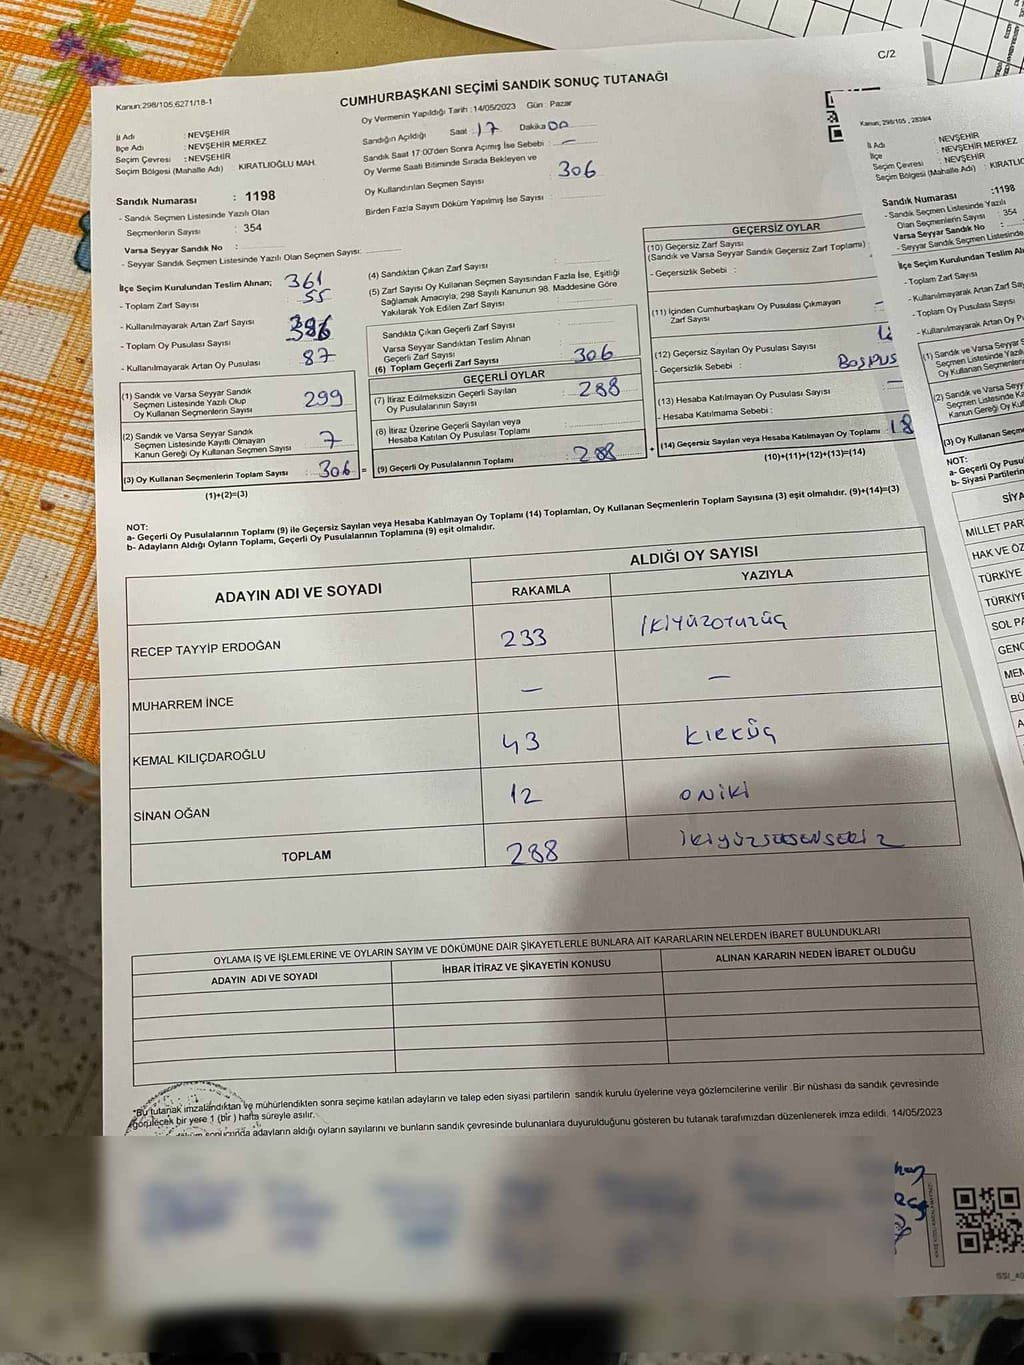 C/2
Kanun:298/105,6271/18-1
CUMHURBAŞKANI SEÇİMİ SANDIK SONUÇ TUTANAĞI
İl Adı : NEVŞEHİR
İlçe Adı : NEVŞEHİR MERKEZ
Seçim Çevresi : NEVŞEHİR
Seçim Bölgesi (Mahalle Adı) : KIRATLIOĞLU MAH.
Sandık Numarası : 1198
- Sandık Seçmen Listesinde Yazılı Olan
Seçmenlerin Sayısı : 354
Varsa Seyyar Sandık No :
- Seyyar Sandık Seçmen Listesinde Yazılı Olan Seçmen Sayısı:
Oy Vermenin Yapıldığı Tarih : 14/05/2023 Gün : Pazar
Sandığın Açıldığı Saat : 17 Dakika 00
Sandık Saat 17:00'den Sonra Açımış İse Sebebi : –
Oy Verme Saati Bitiminde Sırada Bekleyen ve
Oy Kullandırılan Seçmen Sayısı 306
Birden Fazla Sayım Döküm Yapılmış İse Sayısı :
İlçe Seçim Kurulundan Teslim Alınan;
- Toplam Zarf Sayısı 361
- Kullanılmayarak Artan Zarf Sayısı 55
- Toplam Oy Pusulası Sayısı
- Kullanılmayarak Artan Oy Pusulası 87
(1) Sandık ve Varsa Seyyar Sandık
Seçmen Listesinde Yazılı Olup
Oy Kullanan Seçmenlerin Sayısı : 299
(2) Sandık ve Varsa Seyyar Sandık
Seçmen Listesinde Kayıtlı Olmayan
Kanun Gereği Oy Kullanan Seçmen Sayısı : 7
(3) Oy Kullanan Seçmenlerin Toplam Sayısı : 306 =
(1)+(2)=(3)
(4) Sandıktan Çıkan Zarf Sayısı
(5) Zarf Sayısı Oy Kullanan Seçmen Sayısından Fazla İse, Eşitliği
Sağlamak Amacıyla, 298 Sayılı Kanunun 98. Maddesine Göre
Yakılarak Yok Edilen Zarf Sayısı
Sandıkta Çıkan Geçerli Zarf Sayısı
Varsa Seyyar Sandıktan Teslim Alınan
Geçerli Zarf Sayısı
(6) Toplam Geçerli Zarf Sayısı 306
GEÇERLİ OYLAR
(7) İtiraz Edilmeksizin Geçerli Sayılan
Oy Pusulalarının Sayısı : 288
(8) İtiraz Üzerine Geçerli Sayılan veya
Hesaba Katılan Oy Pusulası Toplamı
(9) Geçerli Oy Pusulalarının Toplamı : 288 +
GEÇERSİZ OYLAR
(10) Geçersiz Zarf Sayısı
(Sandık ve Varsa Seyyar Sandık Geçersiz Zarf Toplamı)
- Geçersizlik Sebebi :
(11) İçinden Cumhurbaşkanı Oy Pusulası Çıkmayan
Zarf Sayısı
(12) Geçersiz Sayılan Oy Pusulası Sayısı
- Geçersizlik Sebebi :
(13) Hesaba Katılmayan Oy Pusulası Sayısı –
- Hesaba Katılmama Sebebi :
(14) Geçersiz Sayılan veya Hesaba Katılmayan Oy Toplamı : 18
(10)+(11)+(12)+(13)=(14)
NOT:
a- Geçerli Oy Pusulalarının Toplamı (9) ile Geçersiz Sayılan veya Hesaba Katılmayan Oy Toplamı (14) Toplamları, Oy Kullanan Seçmenlerin Toplam Sayısına (3) eşit olmalıdır. (9)+(14)=(3)
b- Adayların Aldığı Oyların Toplamı, Geçerli Oy Pusulalarının Toplamına (9) eşit olmalıdır.
ADAYIN ADI VE SOYADI
ALDIĞI OY SAYISI
RAKAMLA YAZIYLA
RECEP TAYYİP ERDOĞAN 233 İKİYÜZOTUZÜÇ
MUHARREM İNCE – –
KEMAL KILIÇDAROĞLU 43 KIRKÜÇ
SİNAN OĞAN 12 ONİKİ
TOPLAM 288 İKİYÜZSEKSENSEKİZ
OYLAMA İŞ VE İŞLEMLERİNE VE OYLARIN SAYIM VE DÖKÜMÜNE DAİR ŞİKAYETLERLE BUNLARA AİT KARARLARIN NELERDEN İBARET BULUNDUKLARI
ADAYIN ADI VE SOYADI İHBAR İTİRAZ VE ŞİKAYETİN KONUSU ALINAN KARARIN NEDEN İBARET OLDUĞU
*Bu tutanak imzalandıktan ve mühürlendikten sonra seçime katılan adayların ve talep eden siyasi partilerin sandık kurulu üyelerine veya gözlemcilerine verilir. Bir nüshası da sandık çevresinde
görülecek bir yere 1 (bir) hafta süreyle asılır.
adayların aldığı oyların sayılarını ve bunların sandık çevresinde bulunanlara duyurulduğunu gösteren bu tutanak tarafımızdan düzenlenerek imza edildi. 14/05/2023
İl Adı : NEVŞEHİR
İlçe : NEVŞEHİR MERKEZ
Seçim Çevresi : NEVŞEHİR
Seçim Bölgesi (Mahalle Adı) :
Sandık Numarası :1198
- Sandık Seçmen Listesinde Yazılı
Olan Seçmenlerin Sayısı : 354
Varsa Seyyar Sandık No :
- Seyyar Sandık Seçmen Listesinde
İlçe Seçim Kurulundan Teslim
- Toplam Zarf Sayısı
- Kullanılmayarak Artan
- Toplam Oy Pusulası Sayısı
- Kullanılmayarak Artan Oy
(1) Sandık ve Varsa Seyyar
(2) Sandık ve Varsa
(3) Oy Kullanan
NOT:
a- Geçerli Oy
b- Siyasi Partilerin
MİLLET
HAK VE
TÜRKİYE
SOL